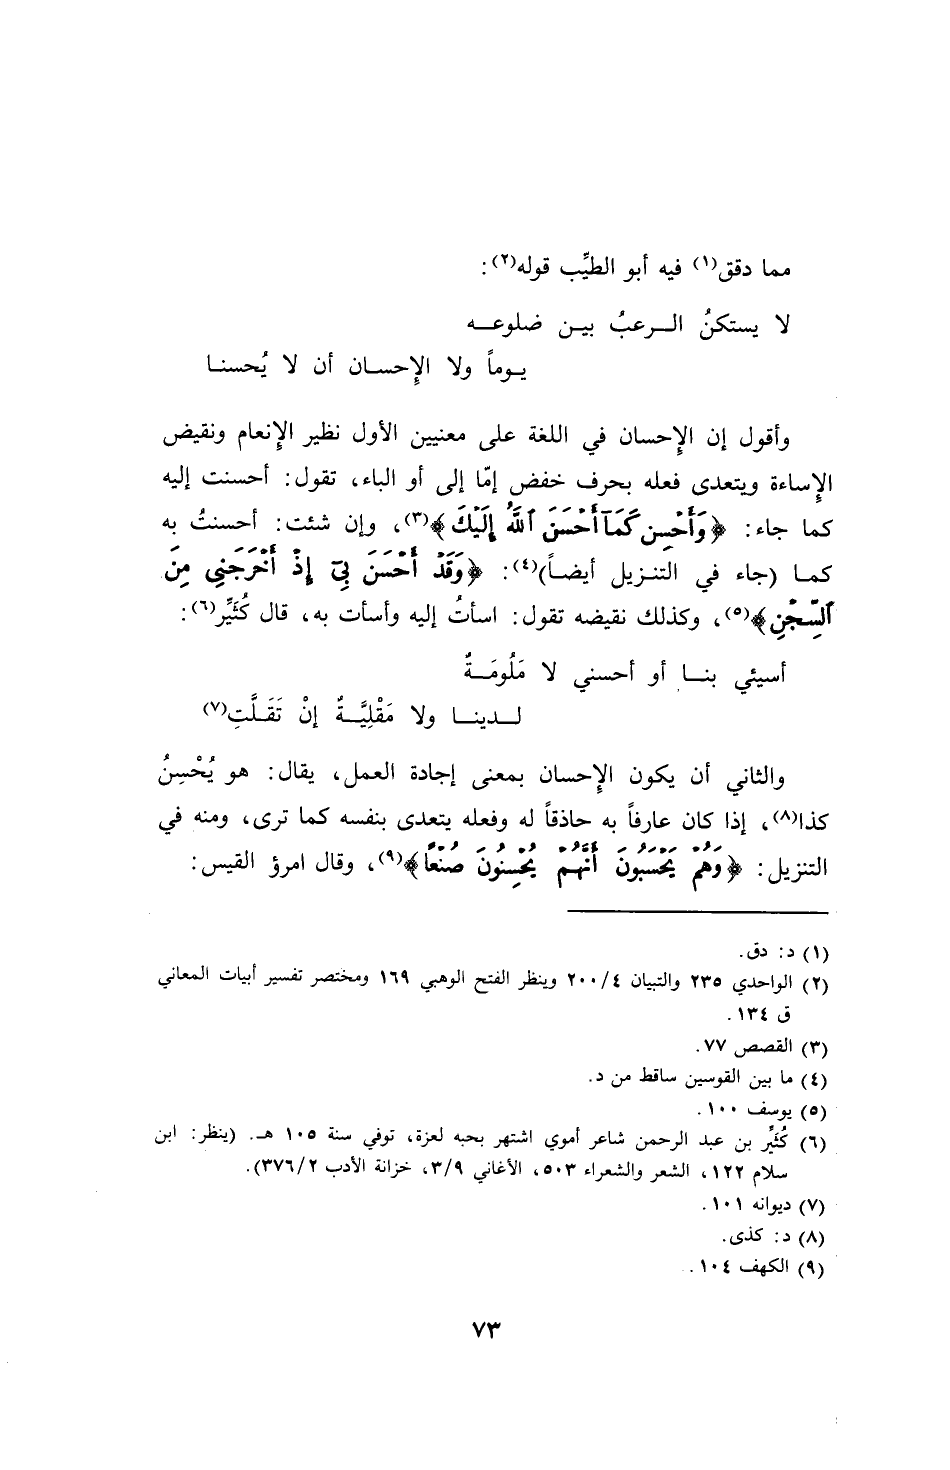 مما دقق(١) فيه أبو الطيِّب قوله(٢):
لا يستكنُ الـرعبُ بيـن ضلوعـه
يـوماً ولا الإحسـان أن لا يُحسنـا
وأقول إن الإحسان في اللغة على معنيين الأول نظير الإنعام ونقيض
الإساءة ويتعدى فعله بحرف خفض إمّا إلى أو الباء، تقول: أحسنت إليه
كما جاء: ﴿وَأَحْسِن كَمَآ أَحْسَنَ ٱللَّهُ إِلَيْكَ﴾(٣)، وإن شئت: أحسنتُ به
كمـا (جاء في التنـزيل أيضـاً)(٤): ﴿وَقَدْ أَحْسَنَ بِىٓ إِذْ أَخْرَجَنِى مِنَ
ٱلسِّجْنِ﴾(٥)، وكذلك نقيضه تقول: اسأتُ إليه وأسأت به، قال كُثَيِّر(٦):
أسيئي بنـا أو أحسني لا مَلُومَـةٌ
لـدينـا ولا مَقْلِيَّـةٌ إنْ تَقَـلَّتِ(٧)
والثاني أن يكون الإحسان بمعنى إجادة العمل، يقال: هو يُحْسِنُ
كذا(٨)، إذا كان عارفاً به حاذقاً له وفعله يتعدى بنفسه كما ترى، ومنه في
التنزيل: ﴿وَهُمْ يَحْسَبُونَ أَنَّهُمْ يُحْسِنُونَ صُنْعًا﴾(٩)، وقال امرؤ القيس:
(١) د: دق.
(٢) الواحدي ٢٣٥ والتبيان ٢٠٠/٤ وينظر الفتح الوهبي ١٦٩ ومختصر تفسير أبيات المعاني
ق ١٣٤.
(٣) القصص ٧٧.
(٤) ما بين القوسين ساقط من د.
(٥) يوسف ١٠٠.
(٦) كُثَيِّر بن عبد الرحمن شاعر أموي اشتهر بحبه لعزة، توفي سنة ١٠٥ هـ. (ينظر: ابن
سلام ١٢٢، الشعر والشعراء ٥٠٣، الأغاني ٣/٩، خزانة الأدب ٣٧٦/٢).
(٧) ديوانه ١٠١.
(٨) د: كذى.
(٩) الكهف ١٠٤.
٧٣